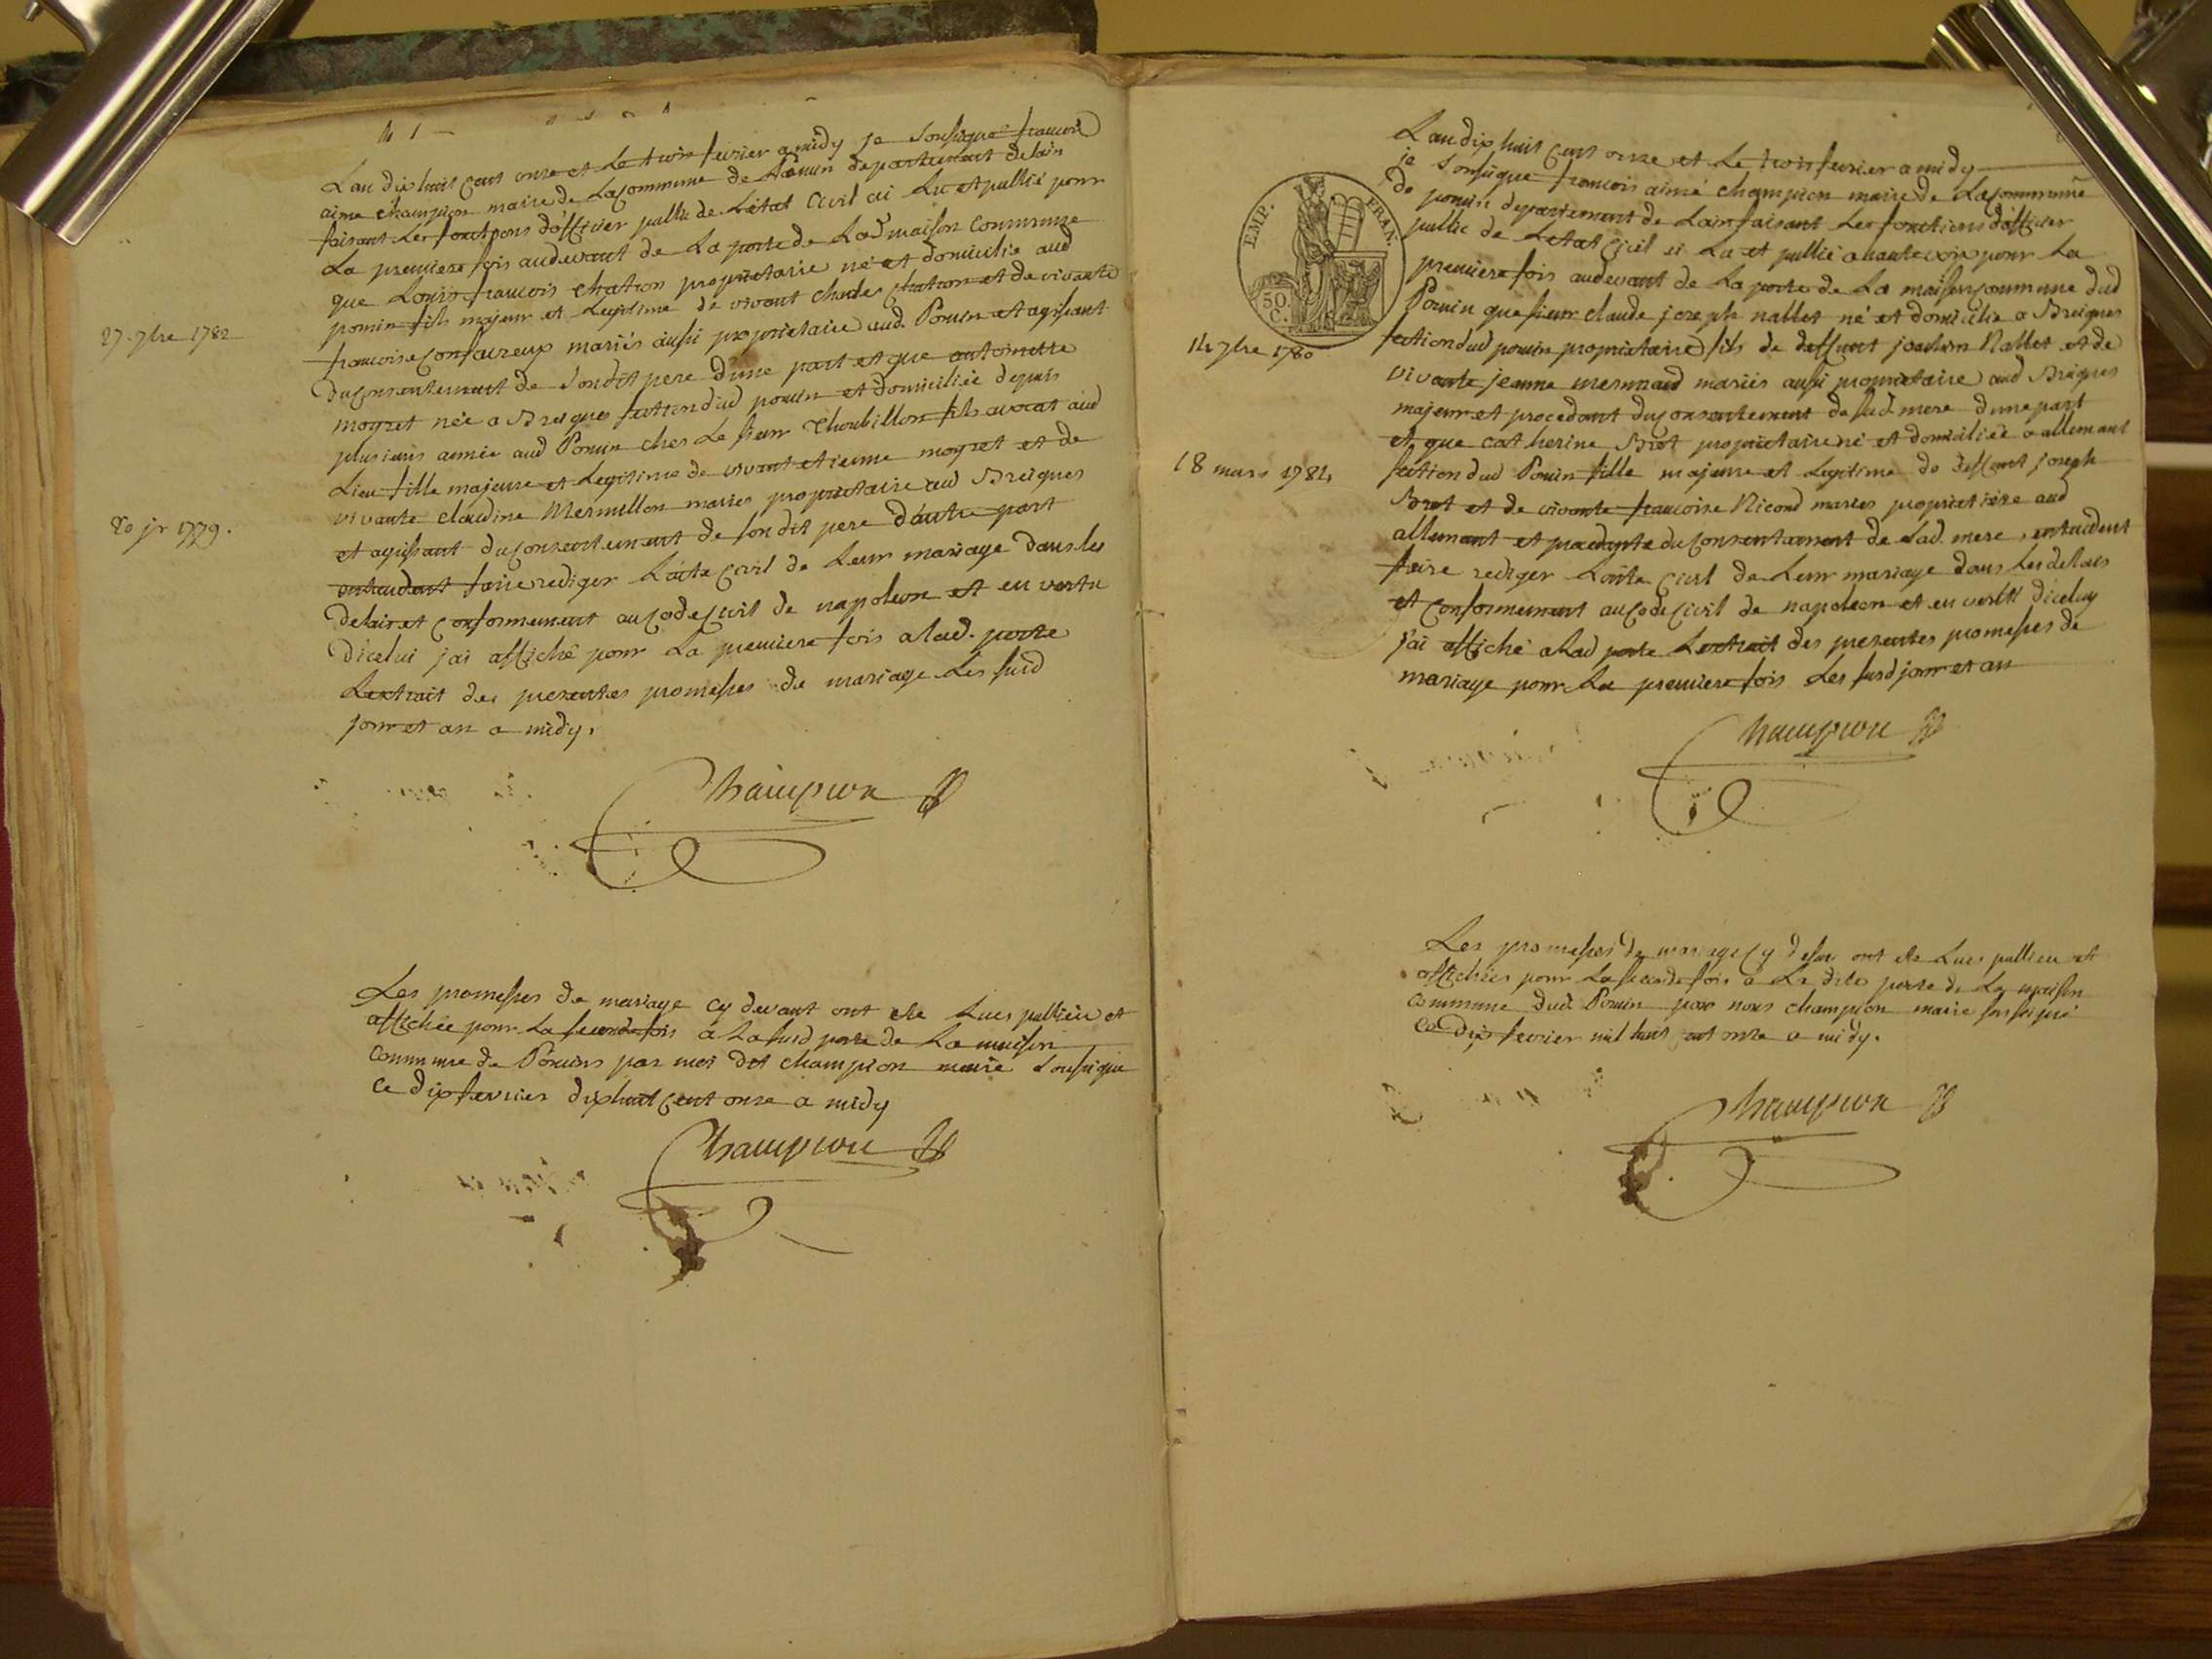 N 1
Lan dix huit cent onze et Le trois fevrier a midy je Soussigné francois
aimé champion maire de Lacommune de Pouuin departement de lain
faisant Les fonctions d'officier public de Létat Civil ai Lu et publié pour
La premiere fois audevant de La porte de Lad maison Commune
que Louis francois chatron propriétaire né et domicilié aud
pouuin fils majeur et Legitime de vivant charles chatron et de vivante
27. 7bre 1782
francoise mariés aussi proprietaire aud. Pouuin et agissant
duconsentement de Sondit pere dune part et que antoinette
moyret née a Breignes section dud pouuin et domiciliée depuis
plusieurs année aud Pouuin ches Le sieur Thoubillon fils avocat aud
Lieu fille majeure et Legitime de vivant etienne moyret et de
20 jr 1779.
vivante claudine Mermillon mariés proprietaire aud Breignes
et agissant duconsentement de Son dit pere dautre part
entendant faire rediger Lacte Civil de Leur mariage dans les
delais et conformement aucode Civil de napoleon et en vertu
dicelui jai affiché pour La premiere fois a lad. porte
Lextrait des presentes promesses de mariage Les susd
jour et an a midy.
Champion
Les promesses de mariage cy devant ont été Lues publiées et
affichée pour La seconde fois a La susd porte de La maison
Commune de Pouuins par moi dit champion maire Soussigné
Ce dix fevrier dixhuit cent onze a midy
Champion
Lan dix huit cent onze et Le trois fevrier a midy
je Soussigné francois aimé champion maire de Lacommune
de pouuin departement de Lain faisant Les fonctions dofficier
public de Letat Civil ai Lu et publié a haute voix pour La
premiere fois audevant de La porte de La maison commune dud
Pouuin que sieur claude joseph nallet né et domicilié a Breignes
EMP. FRAN.
50 C.
14 7bre 1780
section dud pouuin proprietaire fils de deffunt joachim Nallet et de
vivante jeanne mermand mariés aussi proprietaire aud Breignes
majeur et procedant duconsentement de sad mere dune part
et que catherine Bret proprietaire né et domiciliée a allemant
18 mars 1784
section dud Pouuin fille majeure et Legitime de deffunt joseph
Bret et de vivante francoise Nicond mariés proprietaire aud
allemant et procedante du Consentement de Lad. mere, entendent
faire rediger Lacte Civil de Leur mariage dans Les delais
et Conformement aucode Civil de napoleon et en vertu diceluy
j'ai affiché a Lad porte Lextrait des presentes promesses de
mariage pour La premiere fois Les susd jour et an
Champion
Les promesses de mariage cy dessus ont été Lues publiées et
affichées pour La seconde fois a La dite porte de La maison
commune dud Pouuin par nous champion maire soussigné
Ce dix fevrier mil huit cent onze a midy.
Champion